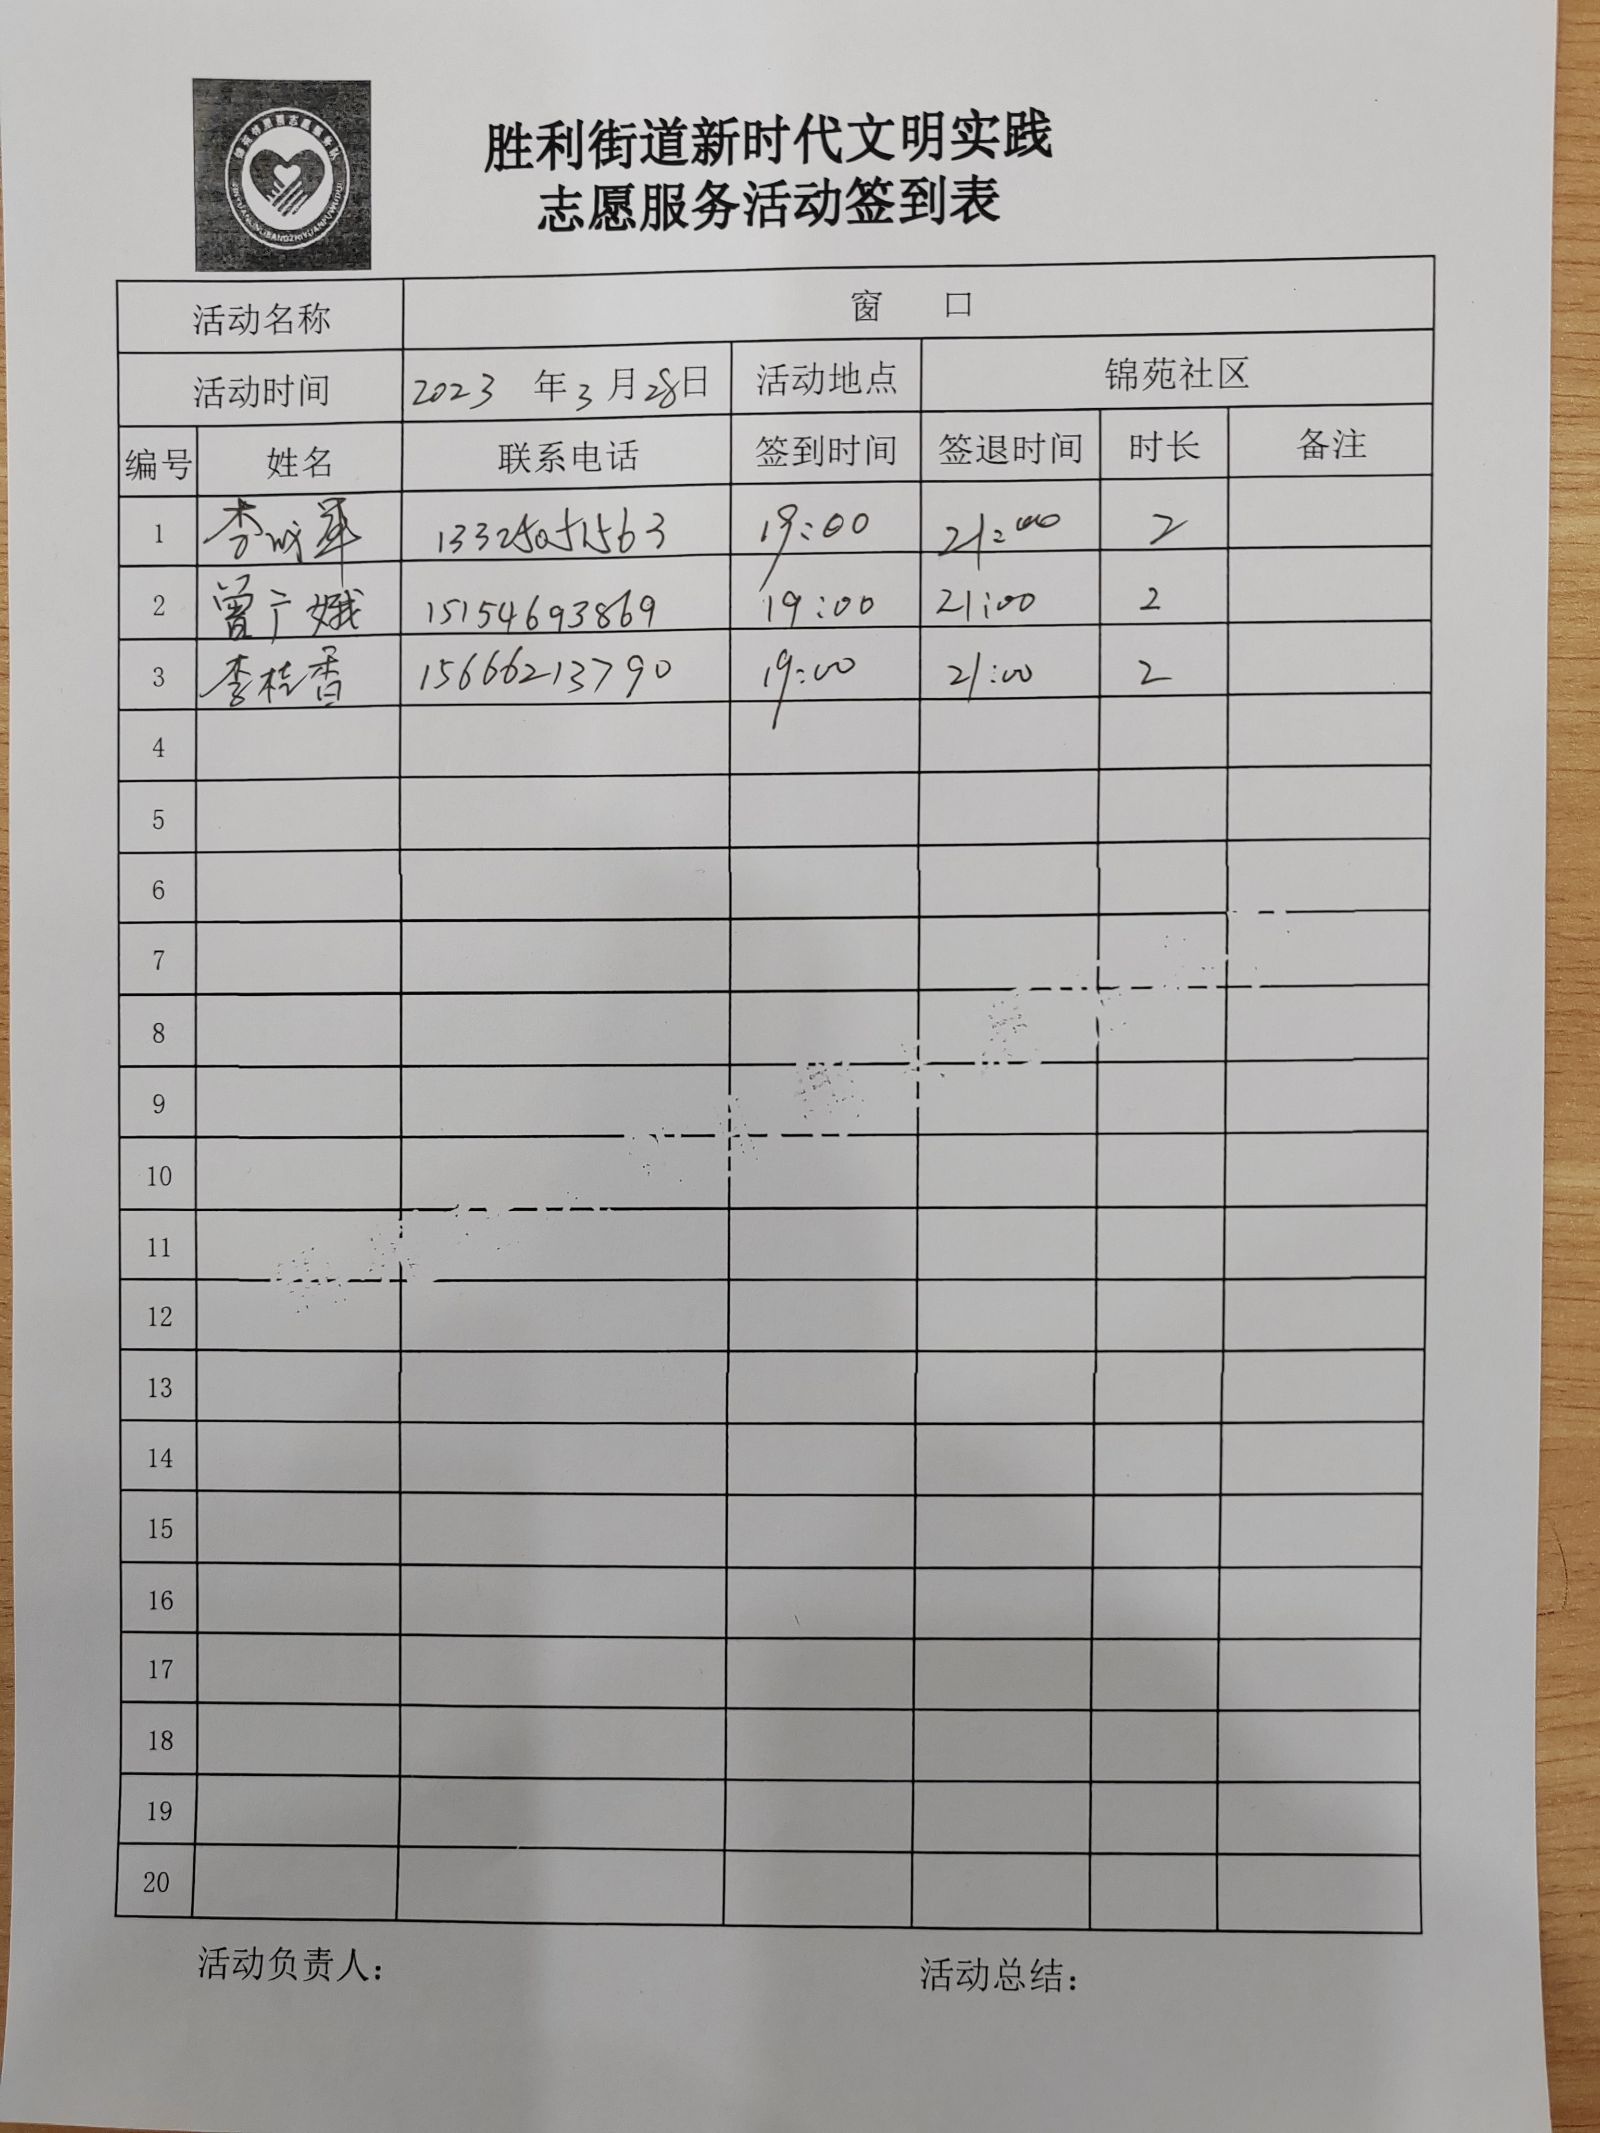 胜利街道新时代文明实践
志愿服务活动签到表
活动名称 窗 口
活动时间 2023 年 3 月 28 日 活动地点 锦苑社区
编号 姓名 联系电话 签到时间 签退时间 时长 备注
1 李 13325051563 19:00 21:00 2
2 曾广娥 15154693869 19:00 21:00 2
3 李桂香 15666213790 19:00 21:00 2
4
5
6
7
8
9
10
11
12
13
14
15
16
17
18
19
20
活动负责人： 活动总结：